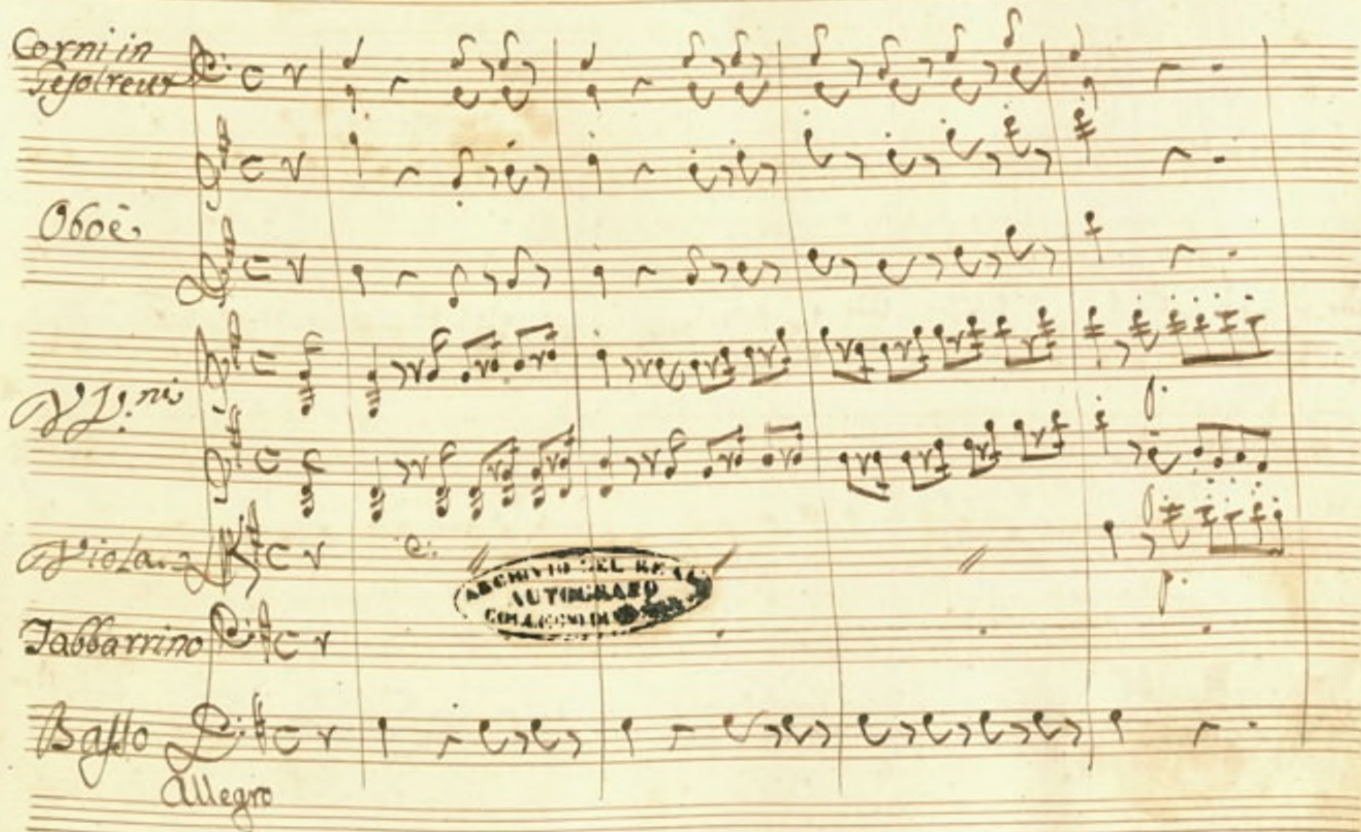 Corni in
Gesolreut
Oboè
VV.ni
Viola
Tabbarrino
Basso
Allegro
ARCHIVIO DEL REAL
AUTOGRAFO